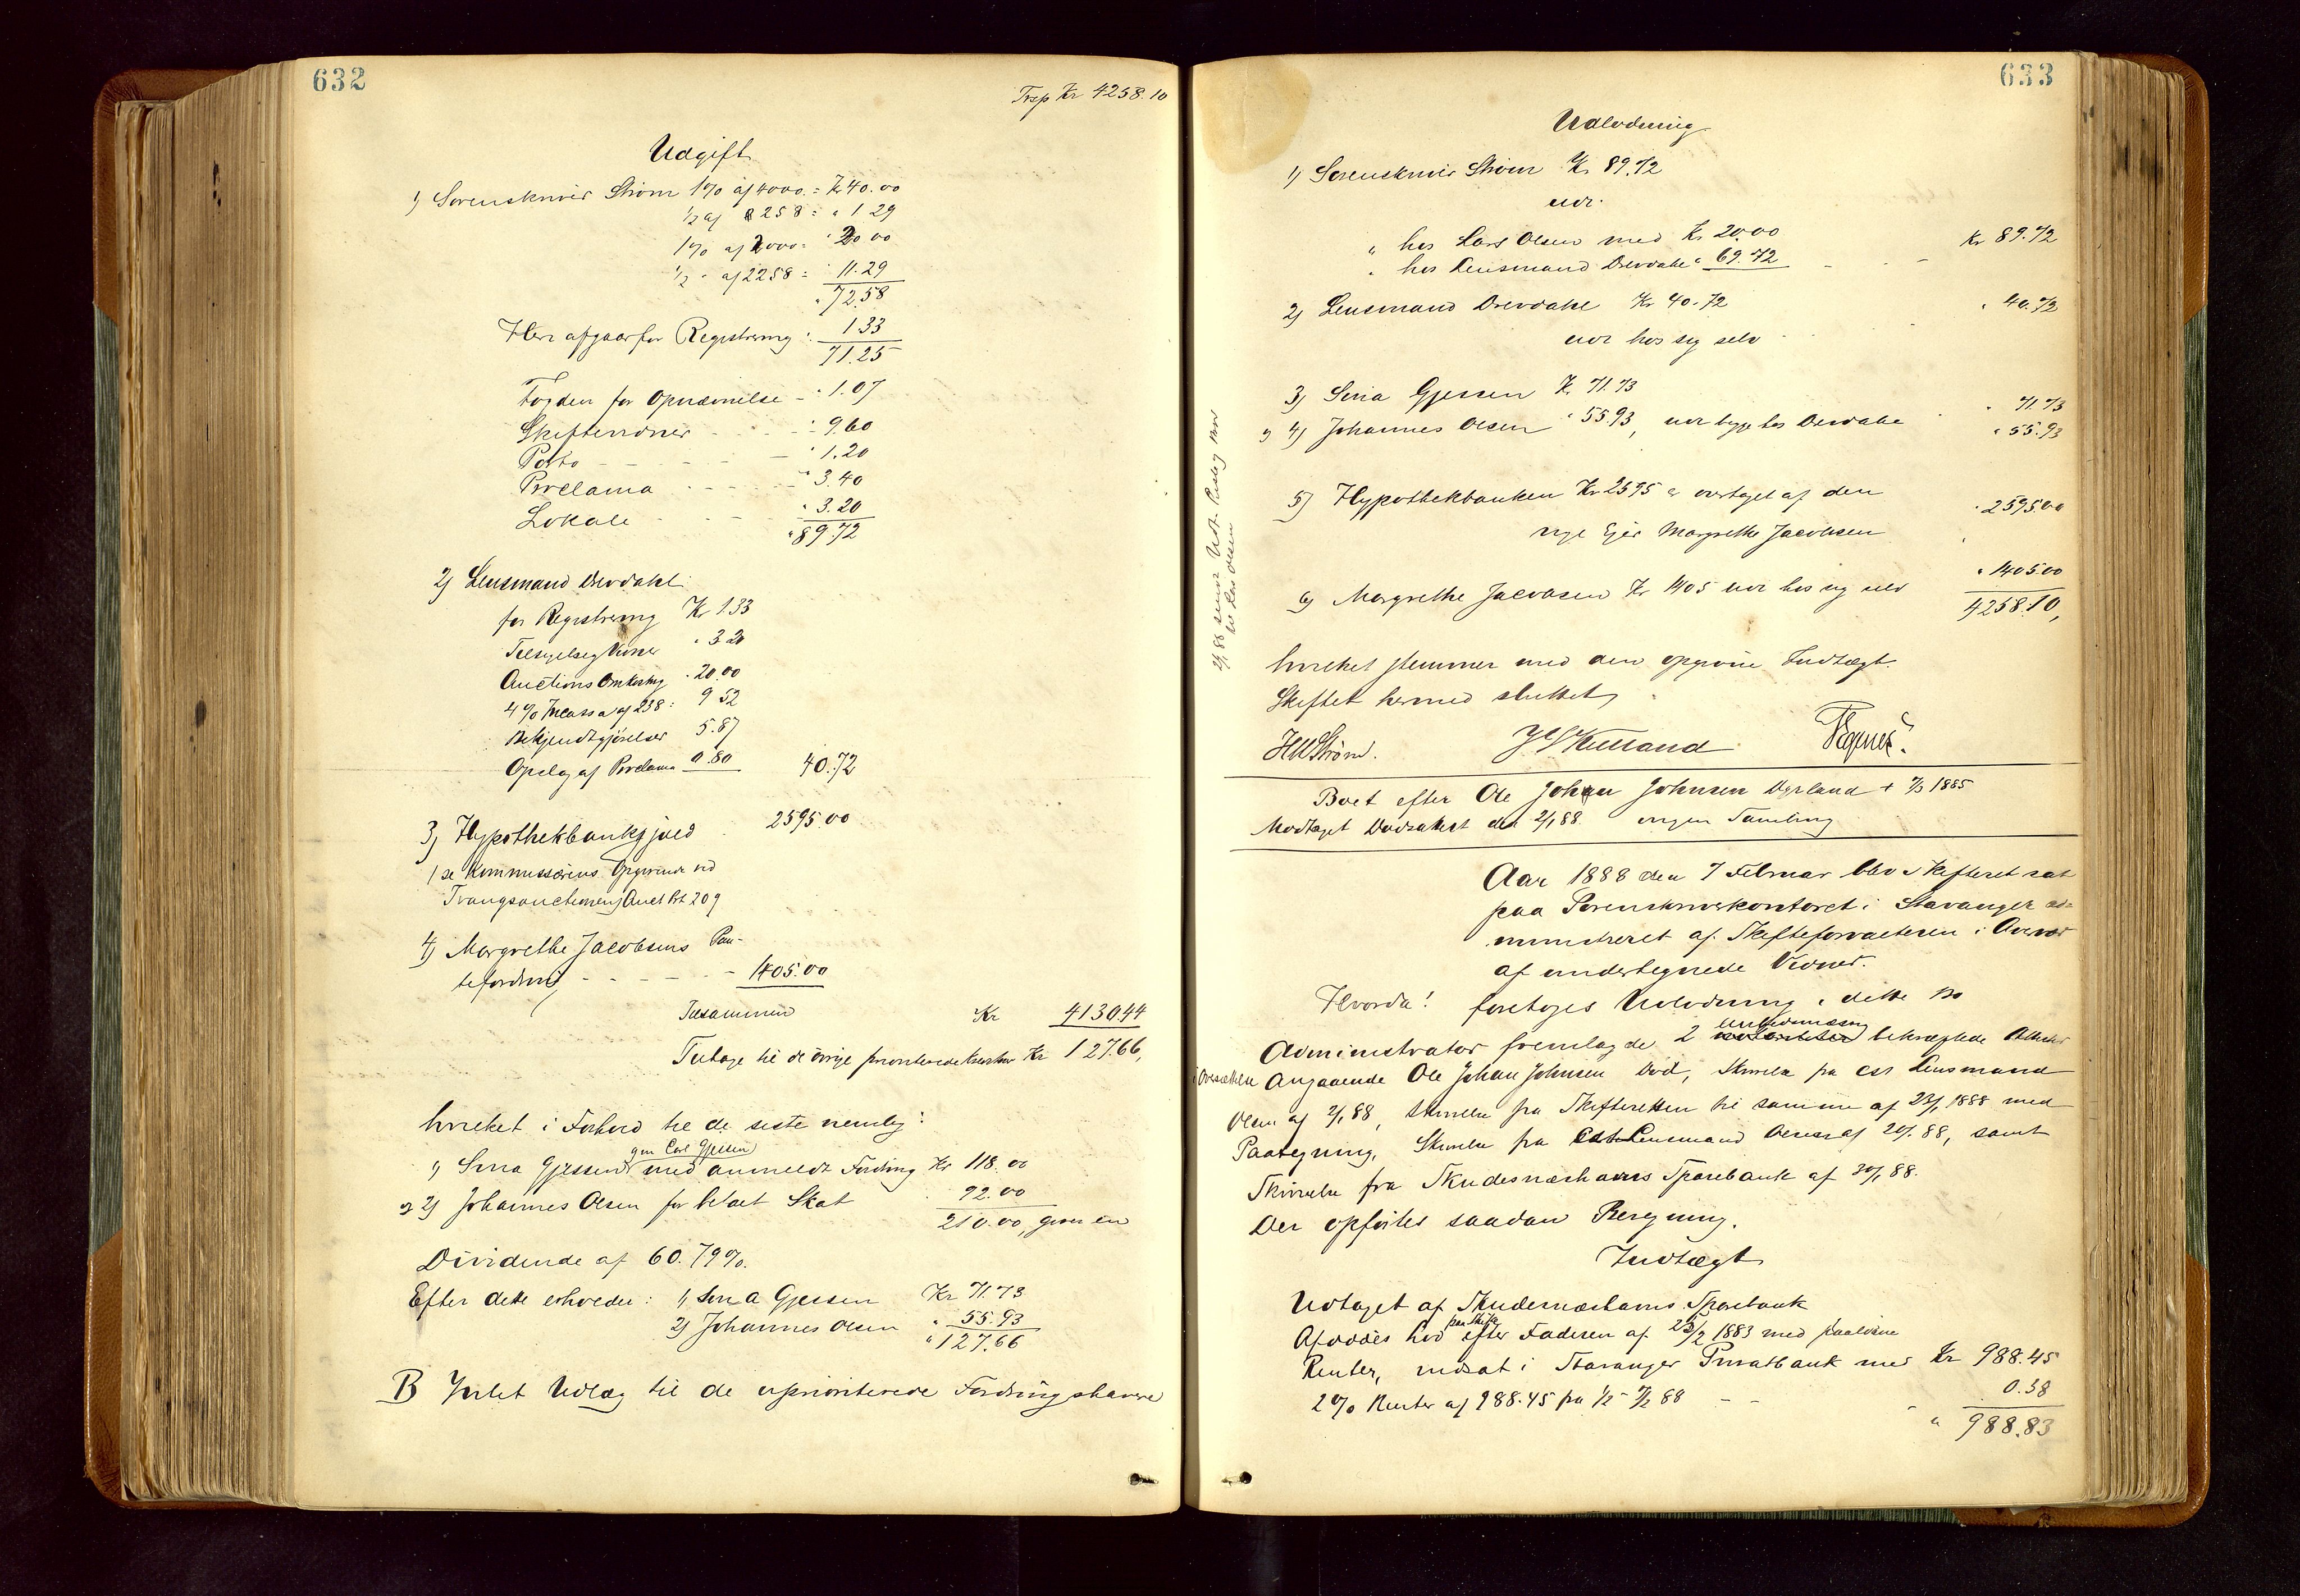 632
Trsp Kr 4258.10
Udgift
1) Sorenskriver Strøm 1% af 4000 = Kr 40.00
½ af 258 = " 1 29
1% af 2000 = " 20 00
½ " af 2258 = " 11.29
" 72.58
Her afgaar for Registrering : 1 33
71.25
Fogden for Opnævnelse - " 1.07
Skiftevidner - - - " 9.60
Porto - - - - - " 1.20
Proclama - - - - " 3.40
Lokale - - - " 3.20
" 89.72
2) Lensmand Drevdahl
for Registrering Kr 1.33
Tilsigelse af Vidner " 3 20
Auctions Omkostng " 20.00
4% Incasso af 238 : 9 52
Bekjendtgjørelser 5.87
Opslag af Proclama 0.80 40.72
3) Hypothekbankgjæld 2595.00
/ se Kommissærens Opgivende ved
Tvangsauctionen Auct Prt 209
4) Margrethe Jacobsens Pan-
tefordring - - - - - 1405.00
Tilsammen Kr 4130.44
Tilbage til de øvrige prioriterede Krav Kr 127.66,
hvilket i Forhold til de siste nemlig :
gm Carl Gjessen
1) Sina Gjessen med anmeldt Fordring Kr 118.00
og 2) Johannes Olsen for betalt Skat 92.00
210.00, giver en
Dividende af 60.79%.
Efter dette erholder : 1) Sina Gjessen Kr 71.73
2) Johannes Olsen " 55.93
" 127.66
B Intet Udlæg til de uprioriterede Fordringshavere
633
Udlodning
1) Sorenskriver Strøm Kr 89.72
udv.
" hos Lars Olsen med Kr 20.00
" hos Lensmand Drevdahl " 69.72 - - Kr 89.72
2) Lensmand Drevdahl Kr 40.72 " 40.72
udv hos sig selv
3) Sina Gjessen Kr 71.73 " 71.73
og 4) Johannes Olsen " 55.93, udv begge hos Drevdahl " 55.93
5) Hypothekbanken Kr 2595 er overtaget af den
nye Ejer Margrethe Jacobsen " 2595.00
6) Margrethe Jacobsen Kr 1405 udv hos sig selv " 1405.00
4258.10,
hvilket stemmer med den opgivne Indtægt.
Skiftet hermed sluttet
HWStrøm.
Boet efter Ole Johan Johnsen Dyrland + 7/3 1885
Modtaget Dødsattest den 2/1 88 ingen Samling
Aar 1888 den 7 Februar blev Skifteret sat
paa Sorenskriverkontoret i Stavanger ad-
ministreret af Skifteforvalteren i Overvær
af undertegnede Vidner.
Hvorda! foretoges Udlodning i dette Bo
Administrator fremlagde 2 bekræftede Attester
Angaaende Ole Johan Johnsen Død, Skrivelse fra cst Lensmand
Olsen af 2/1 88, Skrivelse fra Skifteretten til samme af 23/1 1888 med
Paategning, Skrivelse fra Cst Lensmand Olsen af 88, samt
Skrivelse fra Skudesneshavns Sparebank af 30/1 88.
Der opførtes saadan Beregning.
Indtægt
Udtaget af Skudesneshavns Sparebank
Afdødes Lod efter Faderen af 1883 med paaløbne
Renter, indsat i Stavanger Privatbank med Kr 988.45
2% Renter af 988.45 fra 1/2 - 7/2 88 - - - 0.38
" 988.83